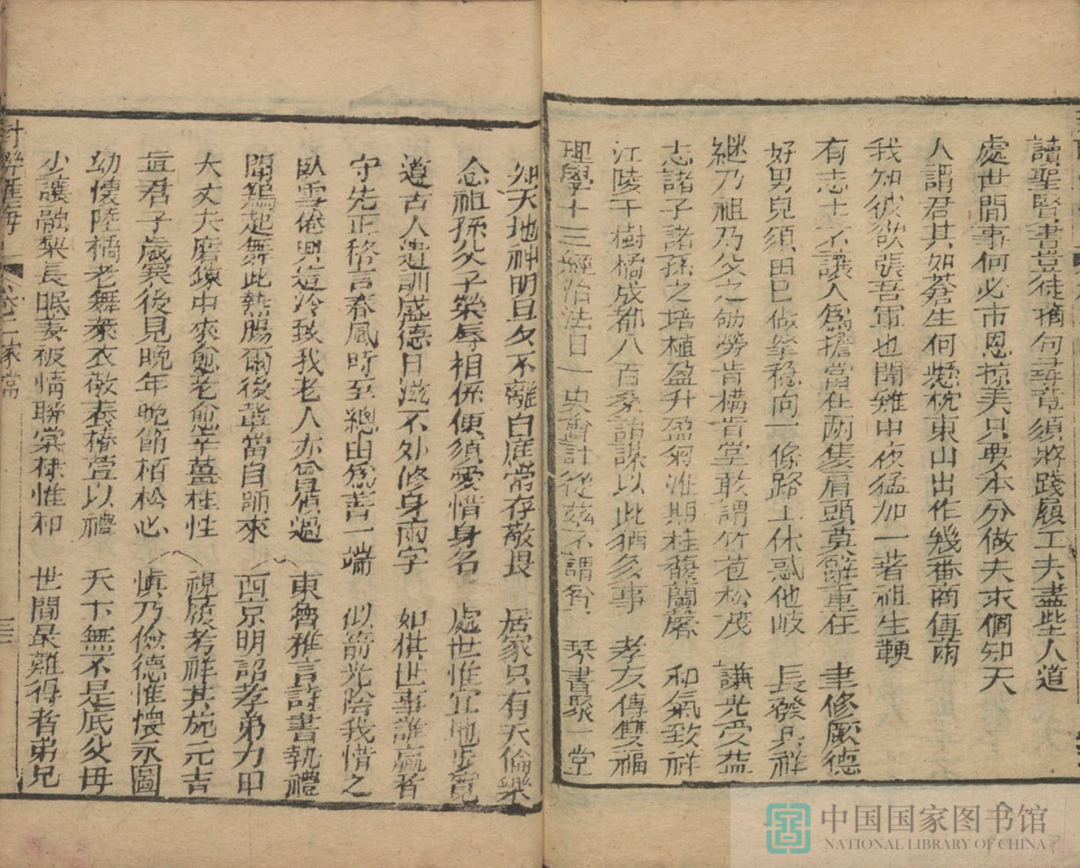 讀聖賢書豈徒摘句尋章須將踐履工夫盡些人道
處世間事何必市恩掠美只要本分做去求個知天
人謂君其如蒼生何憖枕東山出作幾番商傅雨
我知彼欲張吾軍也聞雞中夜猛加一著祖生鞭
有志士不讓人為擔當在兩隻肩頭莫辭重任 聿修厥德
好男兒須由己做拏穩向一條路上休惑他岐 長發其祥
繼乃祖乃父之劬勞肯構肯堂敢謂竹苞松茂 謙光受益
志諸子諸孫之培植盈升盈匊准期桂馥蘭馨 和氣致祥
江陵千樹橘成都八百桑詒謀以此猶多事 孝友傳雙福
理學十三經治法廿一史會計從茲不謂貧 琴書聚一堂
知天地神明旦夕不離白屋常存敬畏 居家只有天倫樂
念祖孫父子榮辱相係便須愛惜身名 處世惟宜地步寬
遵古人遺訓盛德日滋不外修身兩字 如棋世事誰贏者
守先正格言春風時至總由為善一端 似箭光陰我惜之
臥雪倦興這冷致我老人亦曾最過 東魯雅言詩書執禮
聞鷄起舞此熱腸爾後輩當自師來 西京明詔孝弟力田
大丈夫磨鍊中來愈老愈辛薑桂性 視履考祥其旋元吉
真君子歲寒後見晚年晚節栢松心 慎乃儉德惟懷永圖
幼懷陸橘老舞萊衣敬奉椿萱以禮 天下無不是底父母
少讓融棃長眠姜被情聯棠棣惟和 世間最難得者弟兄
卷二家常